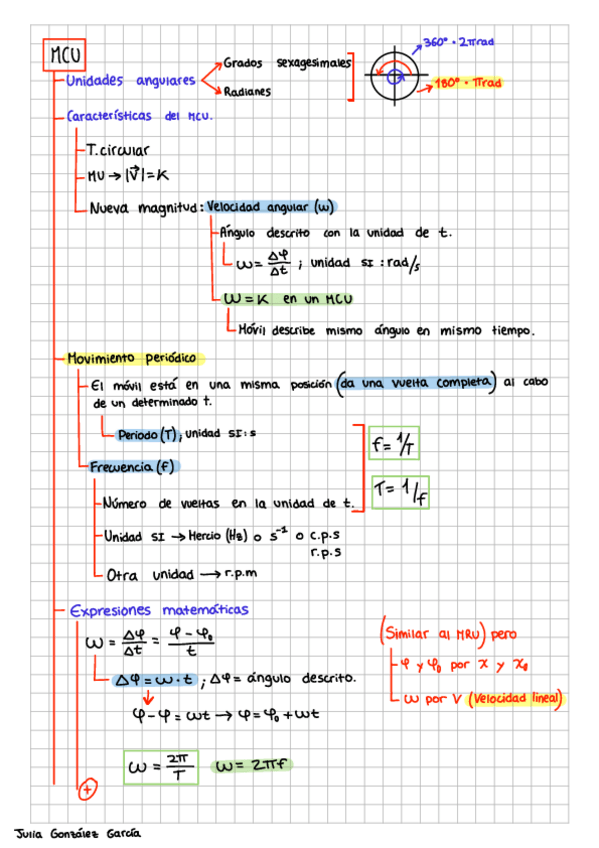 MCU
Unidades angulares
Grados sexagesimales
Radianes
360° · 2πrad
180° · πrad
Características del MCU.
T.circular
MU → |V⃗| = K
Nueva magnitud: Velocidad angular (ω)
Ángulo descrito con la unidad de t.
ω = Δφ/Δt ; unidad SI : rad/s
ω = K en un MCU
Móvil describe mismo ángulo en mismo tiempo.
Movimiento periódico
El móvil está en una misma posición (da una vuelta completa) al cabo
de un determinado t.
Periodo (T); unidad SI: s
Frecuencia (f)
f = 1/T
T = 1/f
Número de vueltas en la unidad de t.
Unidad SI → Hercio (Hz) o s⁻¹ o c.p.s
r.p.s
Otra unidad → r.p.m
Expresiones matemáticas
ω = Δφ/Δt = φ - φ₀/t
Δφ = ω · t ; Δφ = ángulo descrito.
φ - φ = ωt → φ = φ₀ + ωt
(Similar al MRU) pero
φ y φ₀ por x y x₀
ω por V (Velocidad lineal)
ω = 2π/T ω = 2πf
+
Julia González García